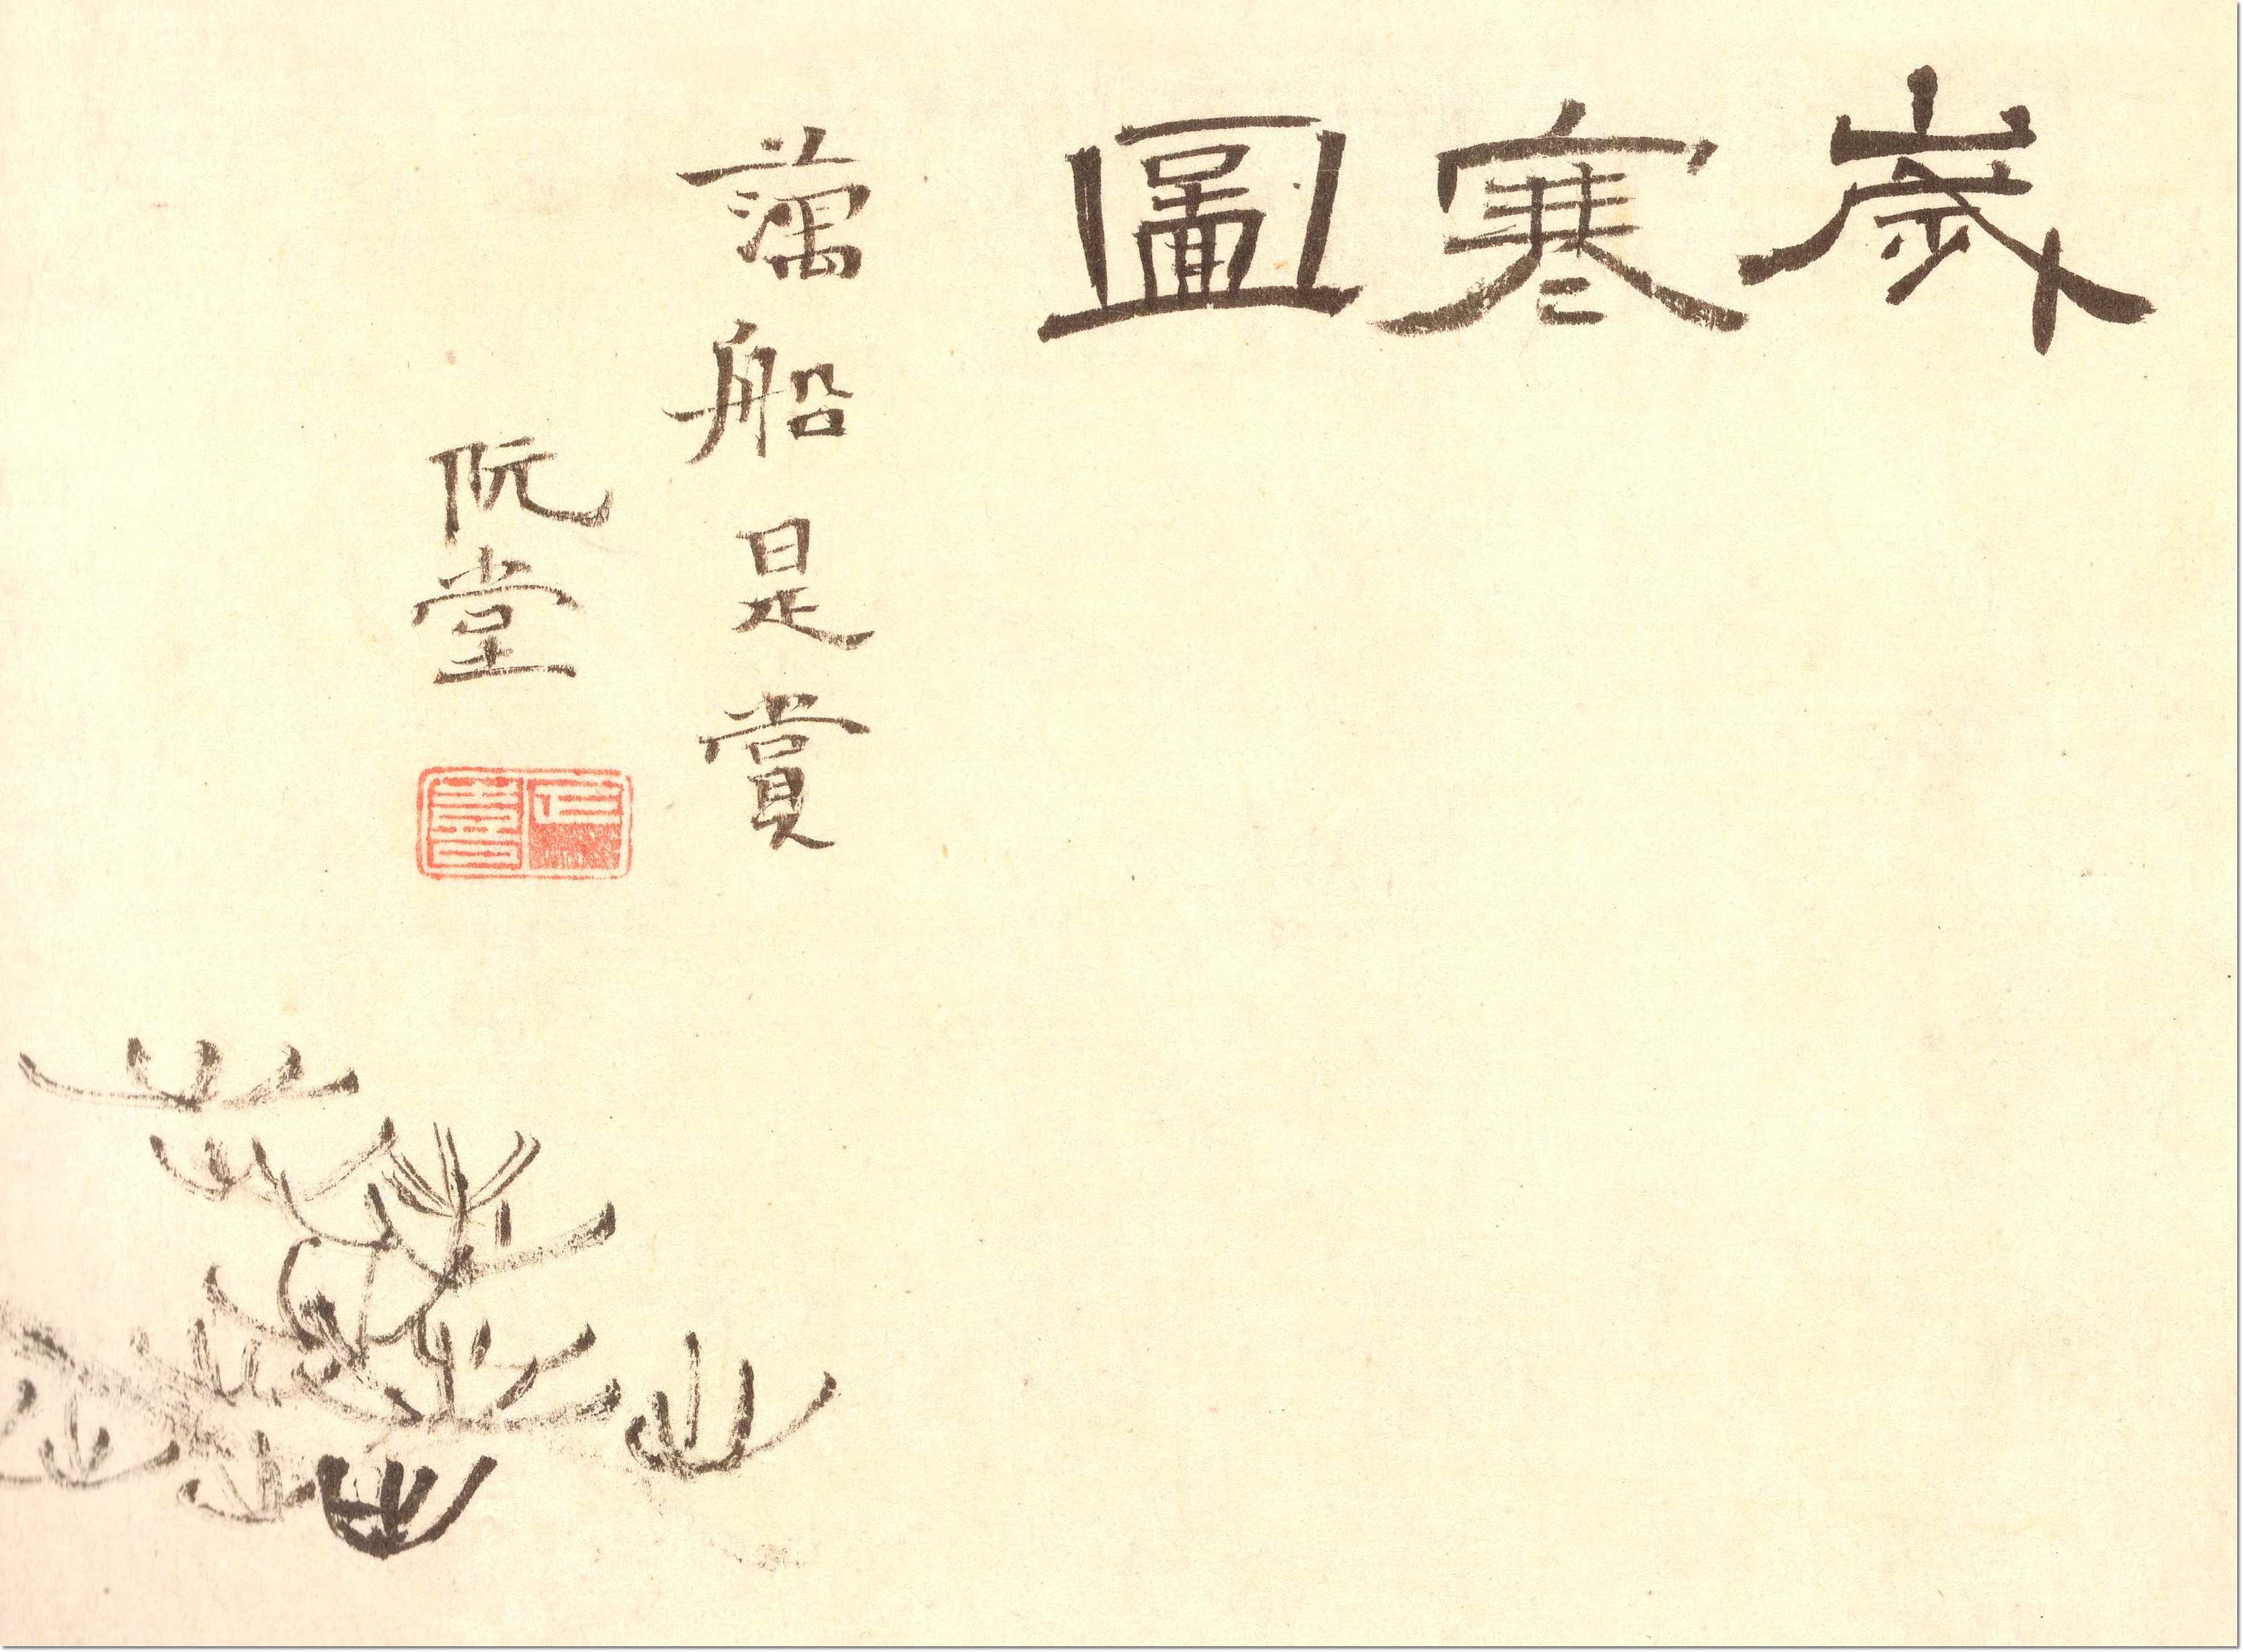 歲寒圖
藕船是賞
阮堂
正喜